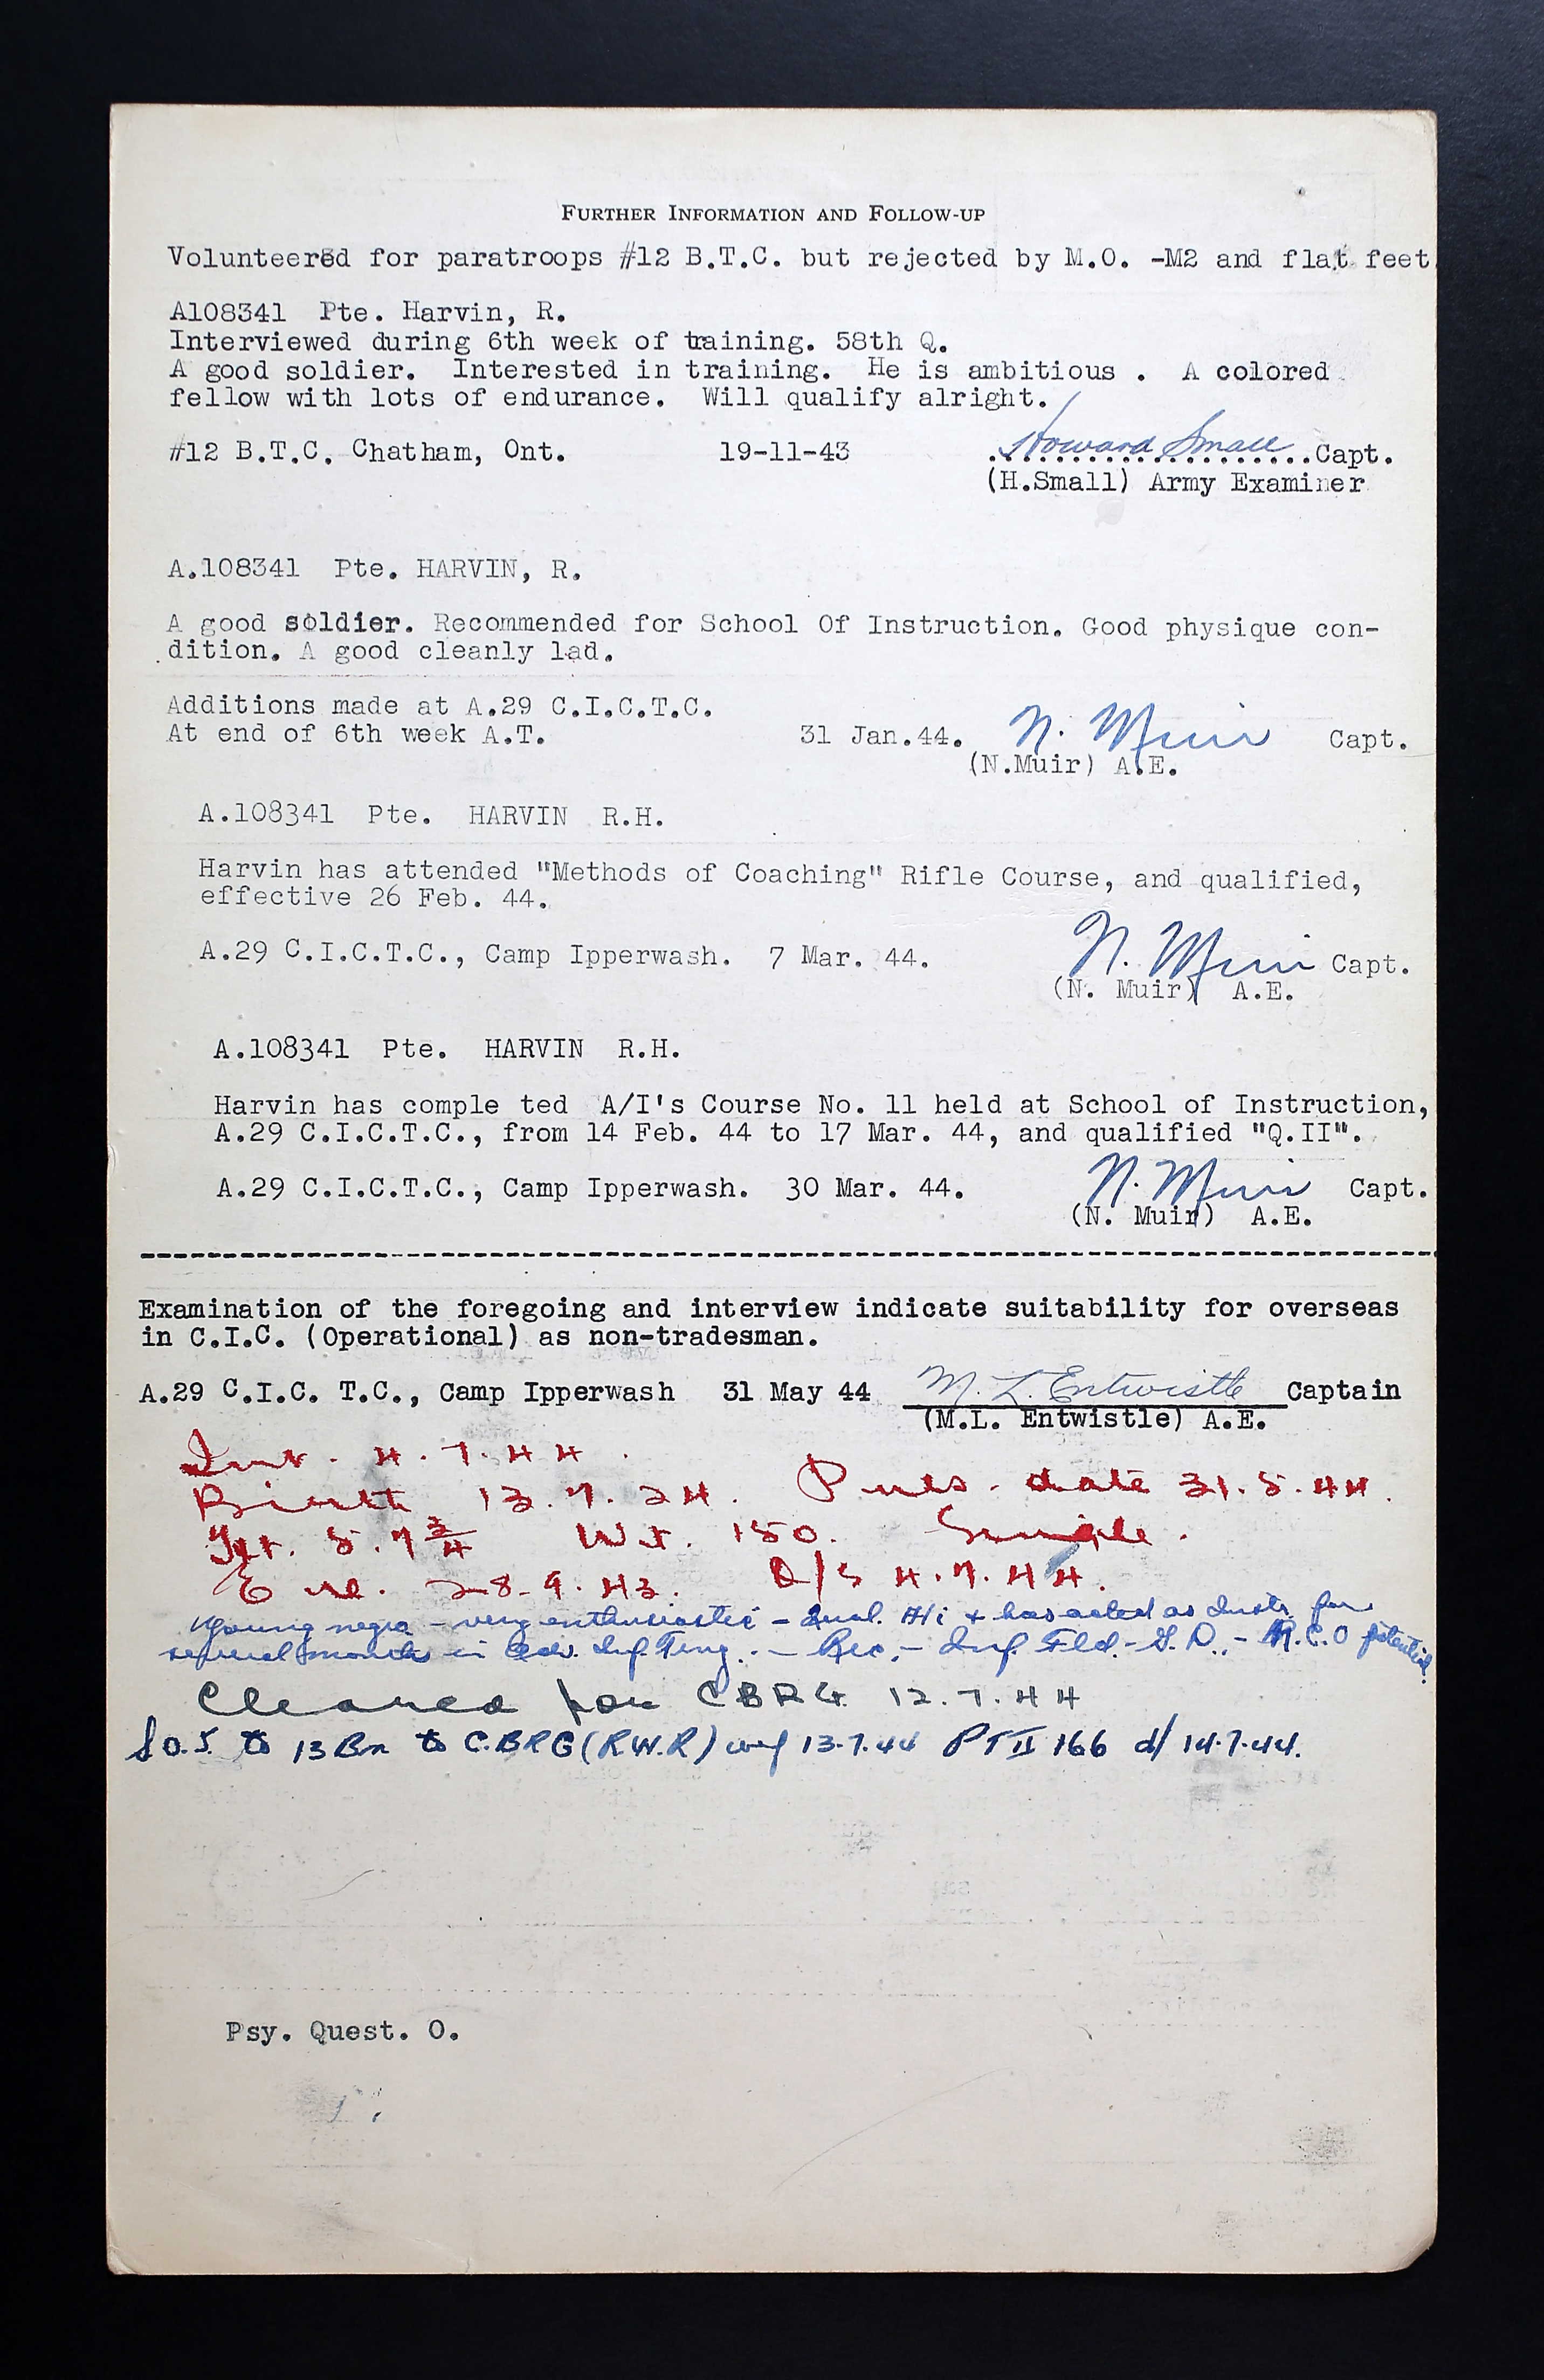 FURTHER INFORMATION AND FOLLOW-UP
Volunteered for paratroops #12 B.T.C. but rejected by M.O. -M2 and flat feet.
A108341 Pte. Harvin, R.
Interviewed during 6th week of training. 58th Q.
A good soldier. Interested in training. He is ambitious . A colored
fellow with lots of endurance. Will qualify alright.
#12 B.T.C. Chatham, Ont. 19-11-43 Howard Small Capt.
(H.Small) Army Examiner
A.108341 Pte. HARVIN, R.
A good soldier. Recommended for School Of Instruction. Good physique con-
dition. A good cleanly lad.
Additions made at A.29 C.I.C.T.C.
At end of 6th week A.T. 31 Jan.44. N. Muir Capt.
(N.Muir) A.E.
A.108341 Pte. HARVIN R.H.
Harvin has attended "Methods of Coaching" Rifle Course, and qualified,
effective 26 Feb. 44.
A.29 C.I.C.T.C., Camp Ipperwash. 7 Mar. 44. N. Muir Capt.
(N. Muir) A.E.
A.108341 Pte. HARVIN R.H.
Harvin has comple ted A/I's Course No. 11 held at School of Instruction,
A.29 C.I.C.T.C., from 14 Feb. 44 to 17 Mar. 44, and qualified "Q.II".
A.29 C.I.C.T.C., Camp Ipperwash. 30 Mar. 44. N. Muir Capt.
(N. Muir) A.E.
Examination of the foregoing and interview indicate suitability for overseas
in C.I.C. (Operational) as non-tradesman.
A.29 C.I.C. T.C., Camp Ipperwash 31 May 44 M. L. Entwistle Captain
(M.L. Entwistle) A.E.
Int. 4.7.44
Birth 13.7.24. Puls. date 31.5.44.
Hgt. 5.7 3/4 Wt. 150. Single.
Enl. 28.9.43. O/S 4.7.44.
Young negro - very enthusiastic - Qual. A/i + has acted as Instr. for
several months in adv. Inf. Trng. - Rec. - Inf. Fld. - G.D. - N.C.O potential.
Cleared for CBRG 12.7.44
S.O.S. to 13 Bn to C.BRG (R.W.R) wef 13.7.44 PT II 166 d/ 14.7.44.
Psy. Quest. 0.